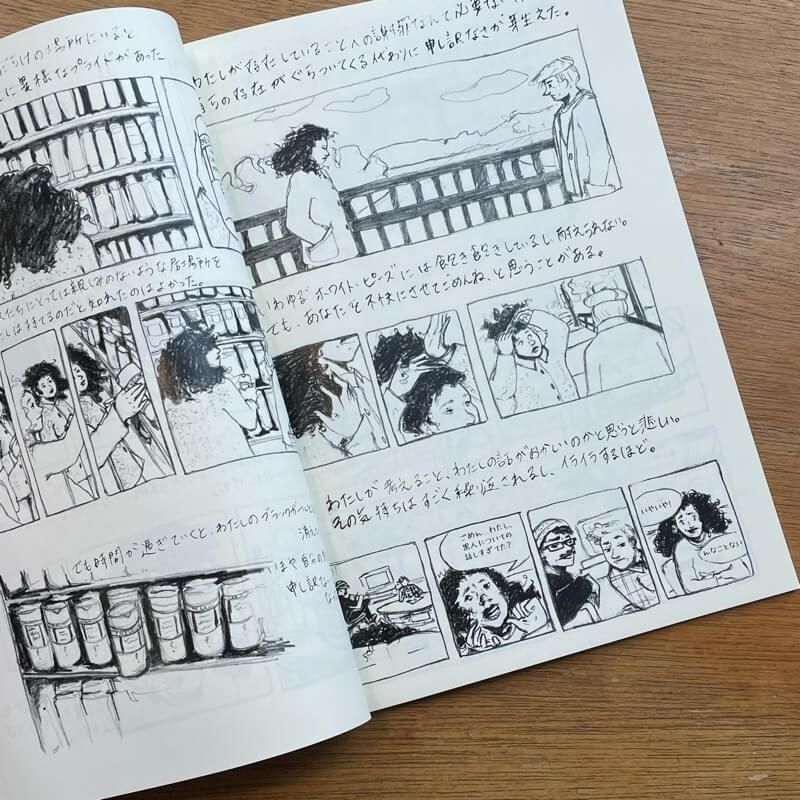 だらけの場所にいると
に異様なプライドがあった
たちにとっては親しみのないような居場所を
しは持てるのだと知れたのはよかった。
でも時間が過ぎていくと、わたしのブラック
わたしが存在していることへの謝罪なんて必要ない
自らの存在がぐらついてくる代わりに申し訳なさが芽生えた。
いわゆるホワイト・ には飽き飽きしているし耐えられない。
でも、あなたを不快にさせてごめんね、と思うことがある。
わたしが考えること、わたしの話がおかしいのかと思うと悲しい。
その気持ちはすごく繰り返されるし、イライラするほど。
いまや自分の
申し訳な
ごめん、わたし、
黒人についての
話しすぎてた?
いやいや!
んなことない